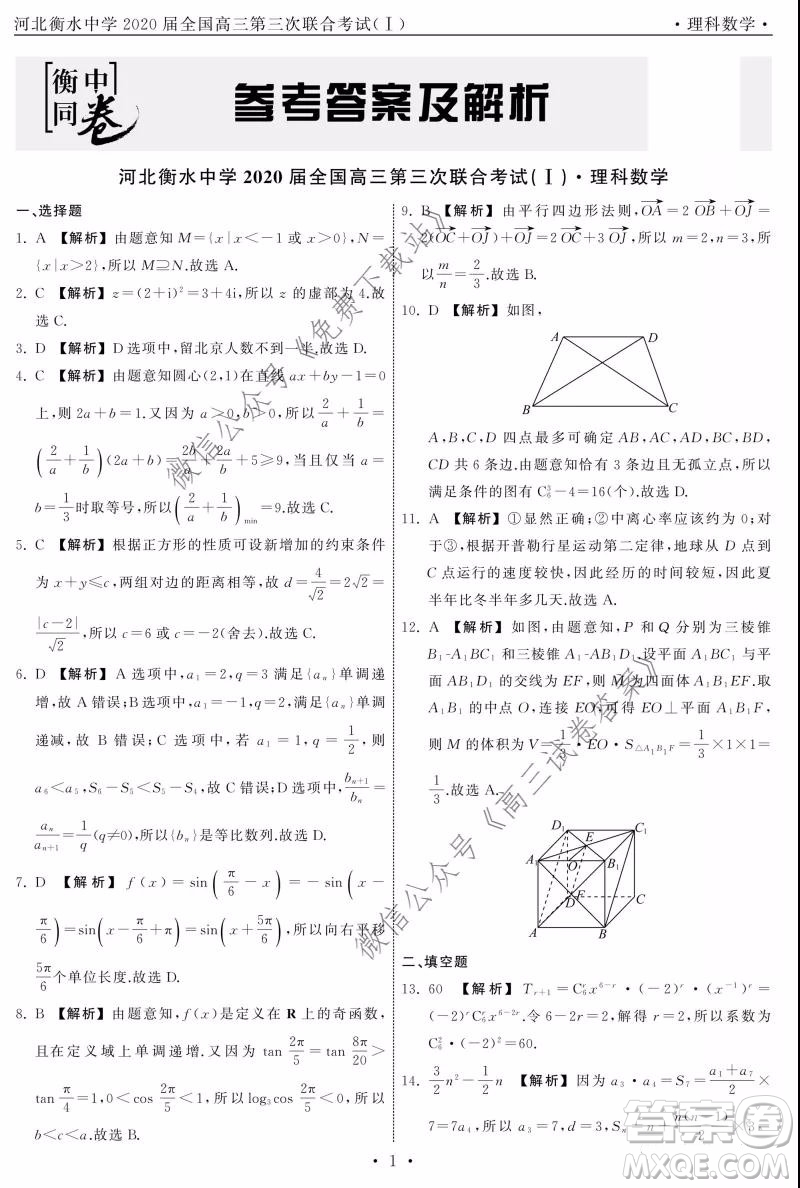 河北衡水中学 2020 届全国高三第三次联合考试(Ⅰ) ·理科数学·
衡中
同卷
参考答案及解析
河北衡水中学 2020 届全国高三第三次联合考试(Ⅰ)·理科数学
一、选择题
1. A 【解析】由题意知 M={x|x<-1 或 x>0},N=
{x|x>2},所以 M⊇N.故选 A.
2. C 【解析】z=(2+i)²=3+4i,所以 z 的虚部为 4.故
选 C.
3. D 【解析】D 选项中,留北京人数不到一半.故选 D.
4. C 【解析】由题意知圆心(2,1)在直线 ax+by-1=0
上,则 2a+b=1.又因为 a>0,b>0,所以 2/a+1/b=
(2/a+1/b)(2a+b)=2b/a+2a/b+5≥9,当且仅当 a=
b=1/3时取等号,所以(2/a+1/b)min=9.故选 C.
5. C 【解析】根据正方形的性质可设新增加的约束条件
为 x+y≤c,两组对边的距离相等,故 d=4/√2=2√2=
|c-2|/√2,所以 c=6 或 c=-2(舍去).故选 C.
6. D 【解析】A 选项中,a₁=2,q=3 满足{aₙ}单调递
增,故 A 错误;B 选项中,a₁=-1,q=2,满足{aₙ}单调
递减,故 B 错误;C 选项中,若 a₁=1,q=1/2,则
a₆<a₅,S₆-S₅<S₅-S₄,故 C 错误;D 选项中,bₙ₊₁/bₙ=
aₙ/aₙ₊₁=1/q(q≠0),所以{bₙ}是等比数列.故选 D.
7. D 【解析】f(x)=sin(π/6-x)=-sin(x-
π/6)=sin(x-π/6+π)=sin(x+5π/6),所以向右平移
5π/6个单位长度.故选 D.
8. B 【解析】由题意知,f(x)是定义在 R 上的奇函数,
且在定义域上单调递增.又因为 tan 2π/5=tan 8π/20>
tan π/4=1,0<cos 2π/5<1,所以 log₃cos 2π/5<0,所以
b<c<a.故选 B.
9. B 【解析】由平行四边形法则,OA=2 OB+OJ=
2(OC+OJ)+OJ=2 OC+3 OJ,所以 m=2,n=3,所
以 m/n=2/3.故选 B.
10. D 【解析】如图,
A D
B C
A,B,C,D 四点最多可确定 AB,AC,AD,BC,BD,
CD 共 6 条边.由题意知恰有 3 条边且无孤立点,所以
满足条件的图有 C³₆-4=16(个).故选 D.
11. A 【解析】①显然正确;②中离心率应该约为 0;对
于③,根据开普勒行星运动第二定律,地球从 D 点到
C 点运行的速度较快,因此经历的时间较短,因此夏
半年比冬半年多几天.故选 A.
12. A 【解析】如图,由题意知,P 和 Q 分别为三棱锥
B₁-A₁BC₁ 和三棱锥 A₁-ADD₁.设平面 A₁BC₁ 与平
面 AB₁D₁ 的交线为 EF,则 M 为四面体 A₁B₁EF.取
A₁B₁ 的中点 O,连接 EO,可得 EO⊥平面 A₁B₁F,
则 M 的体积为 V=1/3·EO·S△A₁B₁F=1/3×1×1=
1/3.故选 A.
D₁ C₁
E
A₁ O B₁
D F C
A B
二、填空题
13. 60 【解析】Tᵣ₊₁=Cʳ₆x⁶⁻ʳ·(-2)ʳ·(x⁻¹)ʳ=
(-2)ʳCʳ₆x⁶⁻²ʳ.令 6-2r=2,解得 r=2,所以系数为
C²₆·(-2)²=60.
14. 3/2n²-1/2n 【解析】因为 a₃·a₄=S₇=(a₁+a₇)/2×
7=7a₄,所以 a₃=7,d=3,所以 Sₙ=n+n(n-1)/2×3=
· 1 ·
微信公众号《免费下载站》
微信公众号《高三试卷答案》
答案圈
MXQE.COM